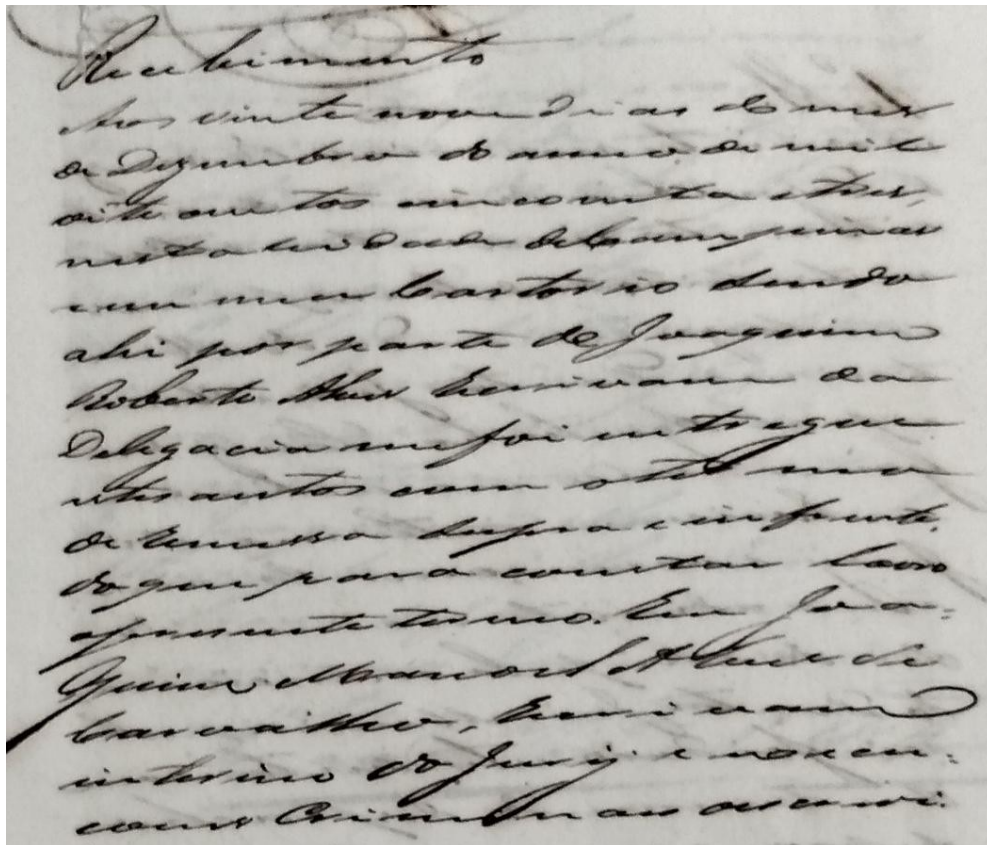 Recebimento
Aos vinte nove dias do mes
de Dezembro do anno de mil
oito centos cincoenta e tres,
nesta Cidade de Campinas
em meu Cartorio sendo
ahi por parte de Joaquim
Roberto Alves Escrivam da
Delegacia me foi entregue
estes autos com o termo
de remessa supra e in frente,
do que para constar lavro
o presente termo. Eu Joa-
quim Manoel Alves de
Carvalho, Escrivam
interino do Jury e
Crimes o escrevi.